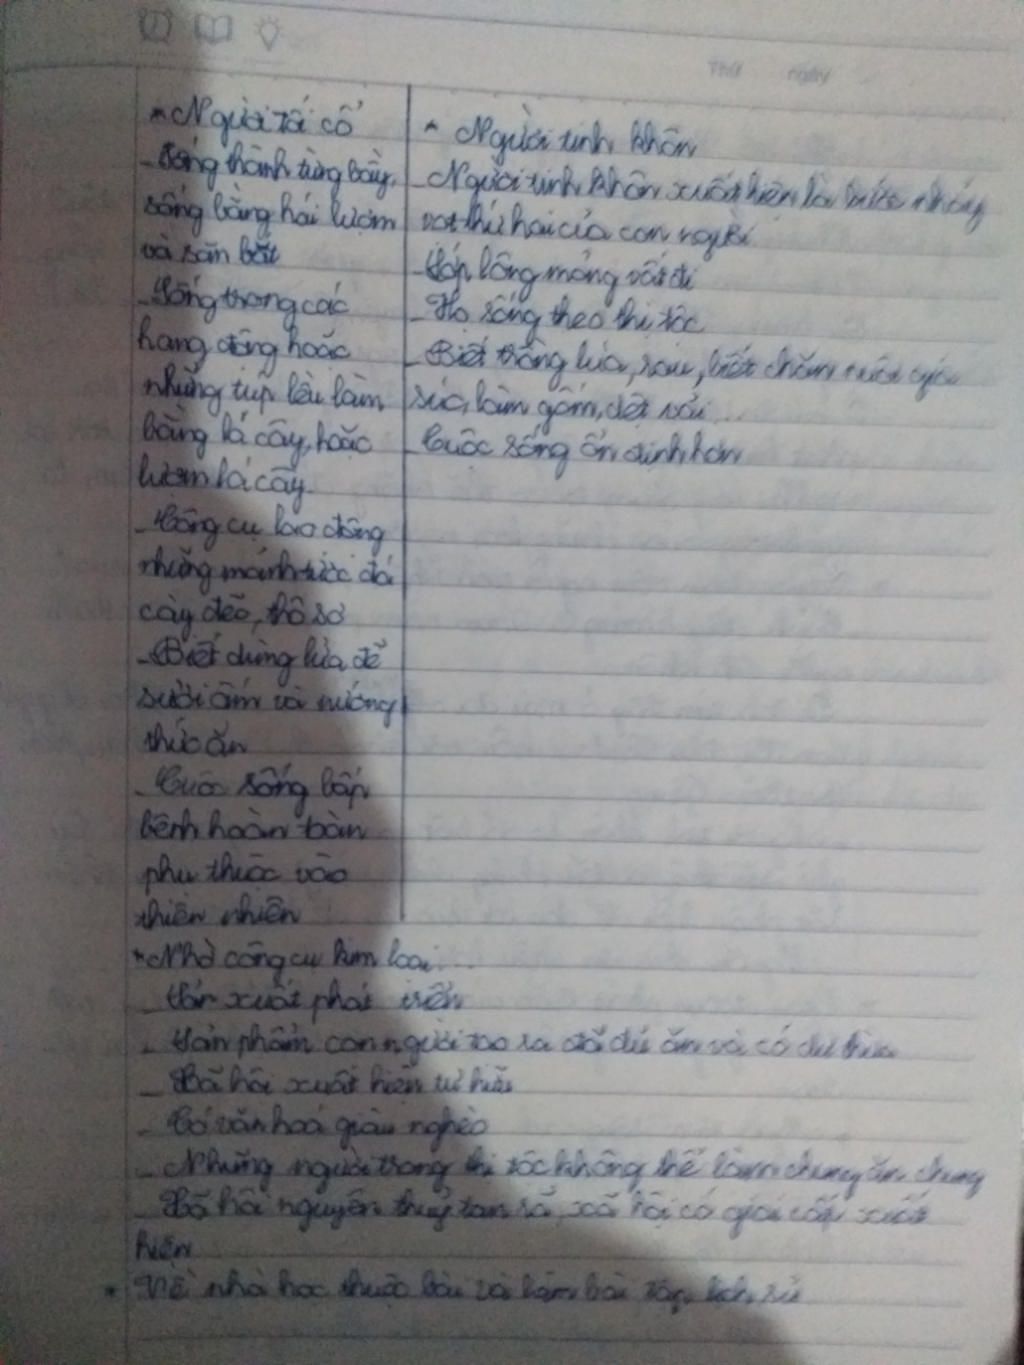 Thứ ngày
* Người tối cổ
- Sống thành từng bầy,
sống bằng hái lượm
và săn bắt
- Sống trong các
hang động hoặc
những túp lều làm
bằng lá cây, hoặc
lượm lá cây
- Công cụ lao động
những mảnh tước đá
cày đẽo, thô sơ
- Biết dùng lửa để
sưởi ấm và nướng
thức ăn
- Cuộc sống bấp
bênh hoàn toàn
phụ thuộc vào
thiên nhiên
* Người tinh khôn
- Người tinh khôn xuất hiện là bước nhảy
vọt thứ hai của con người
- Lớp lông mỏng mất đi
- Họ sống theo thị tộc
- Biết trồng lúa, rau, biết chăn nuôi gia
súc, làm gốm, dệt vải...
- Cuộc sống ổn định hơn
* Nhờ công cụ kim loại...
- Sản xuất phát triển
- Sản phẩm con người tạo ra đã đủ ăn và có dư thừa
- Xã hội xuất hiện tư hữu
- Có văn hoá giàu nghèo
- Những người trong thị tộc không thể làm chung ăn chung
- Xã hội nguyên thuỷ tan rã, xã hội có giai cấp xuất
hiện
* Về nhà học thuộc bài và làm bài tập lịch sử